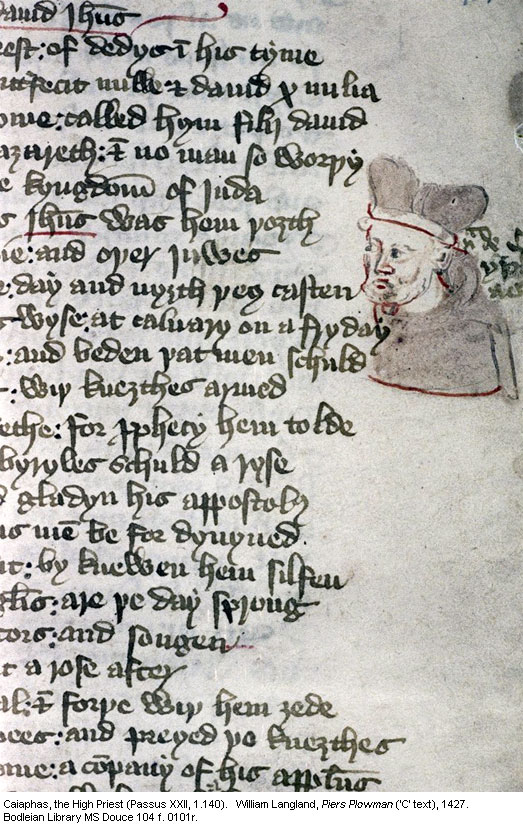 dauid Jhūs
est: of dedys ī his tyme
fecit mille & dauid x milia
ome: called hym filij dauid
azareth: & no man so worþy
e kyngdom̄ of Juda
s Jhūs was hem
and oþer juwes
e: day and nyȝth þey casten
s wyse: at caluary on a fryday
: and beden þat men schuld
: wiþ kneȝthes armed
ethe: for ꝓphecy hem tolde
byryles schuld a ryse
d gladyn his appostolꝭ
us mē be for dyuyned
it: by knewen hem silfen
are þe day sprong
tors: and songen
t a rose after
al: & forþe wiþ hem ȝede
ees: and preyed þo kneȝthes
ome: a cōpany of his
Caiaphas, the High Priest (Passus XXII, 1.140). William Langland, Piers Plowman ('C' text), 1427.
Bodleian Library MS Douce 104 f. 0101r.